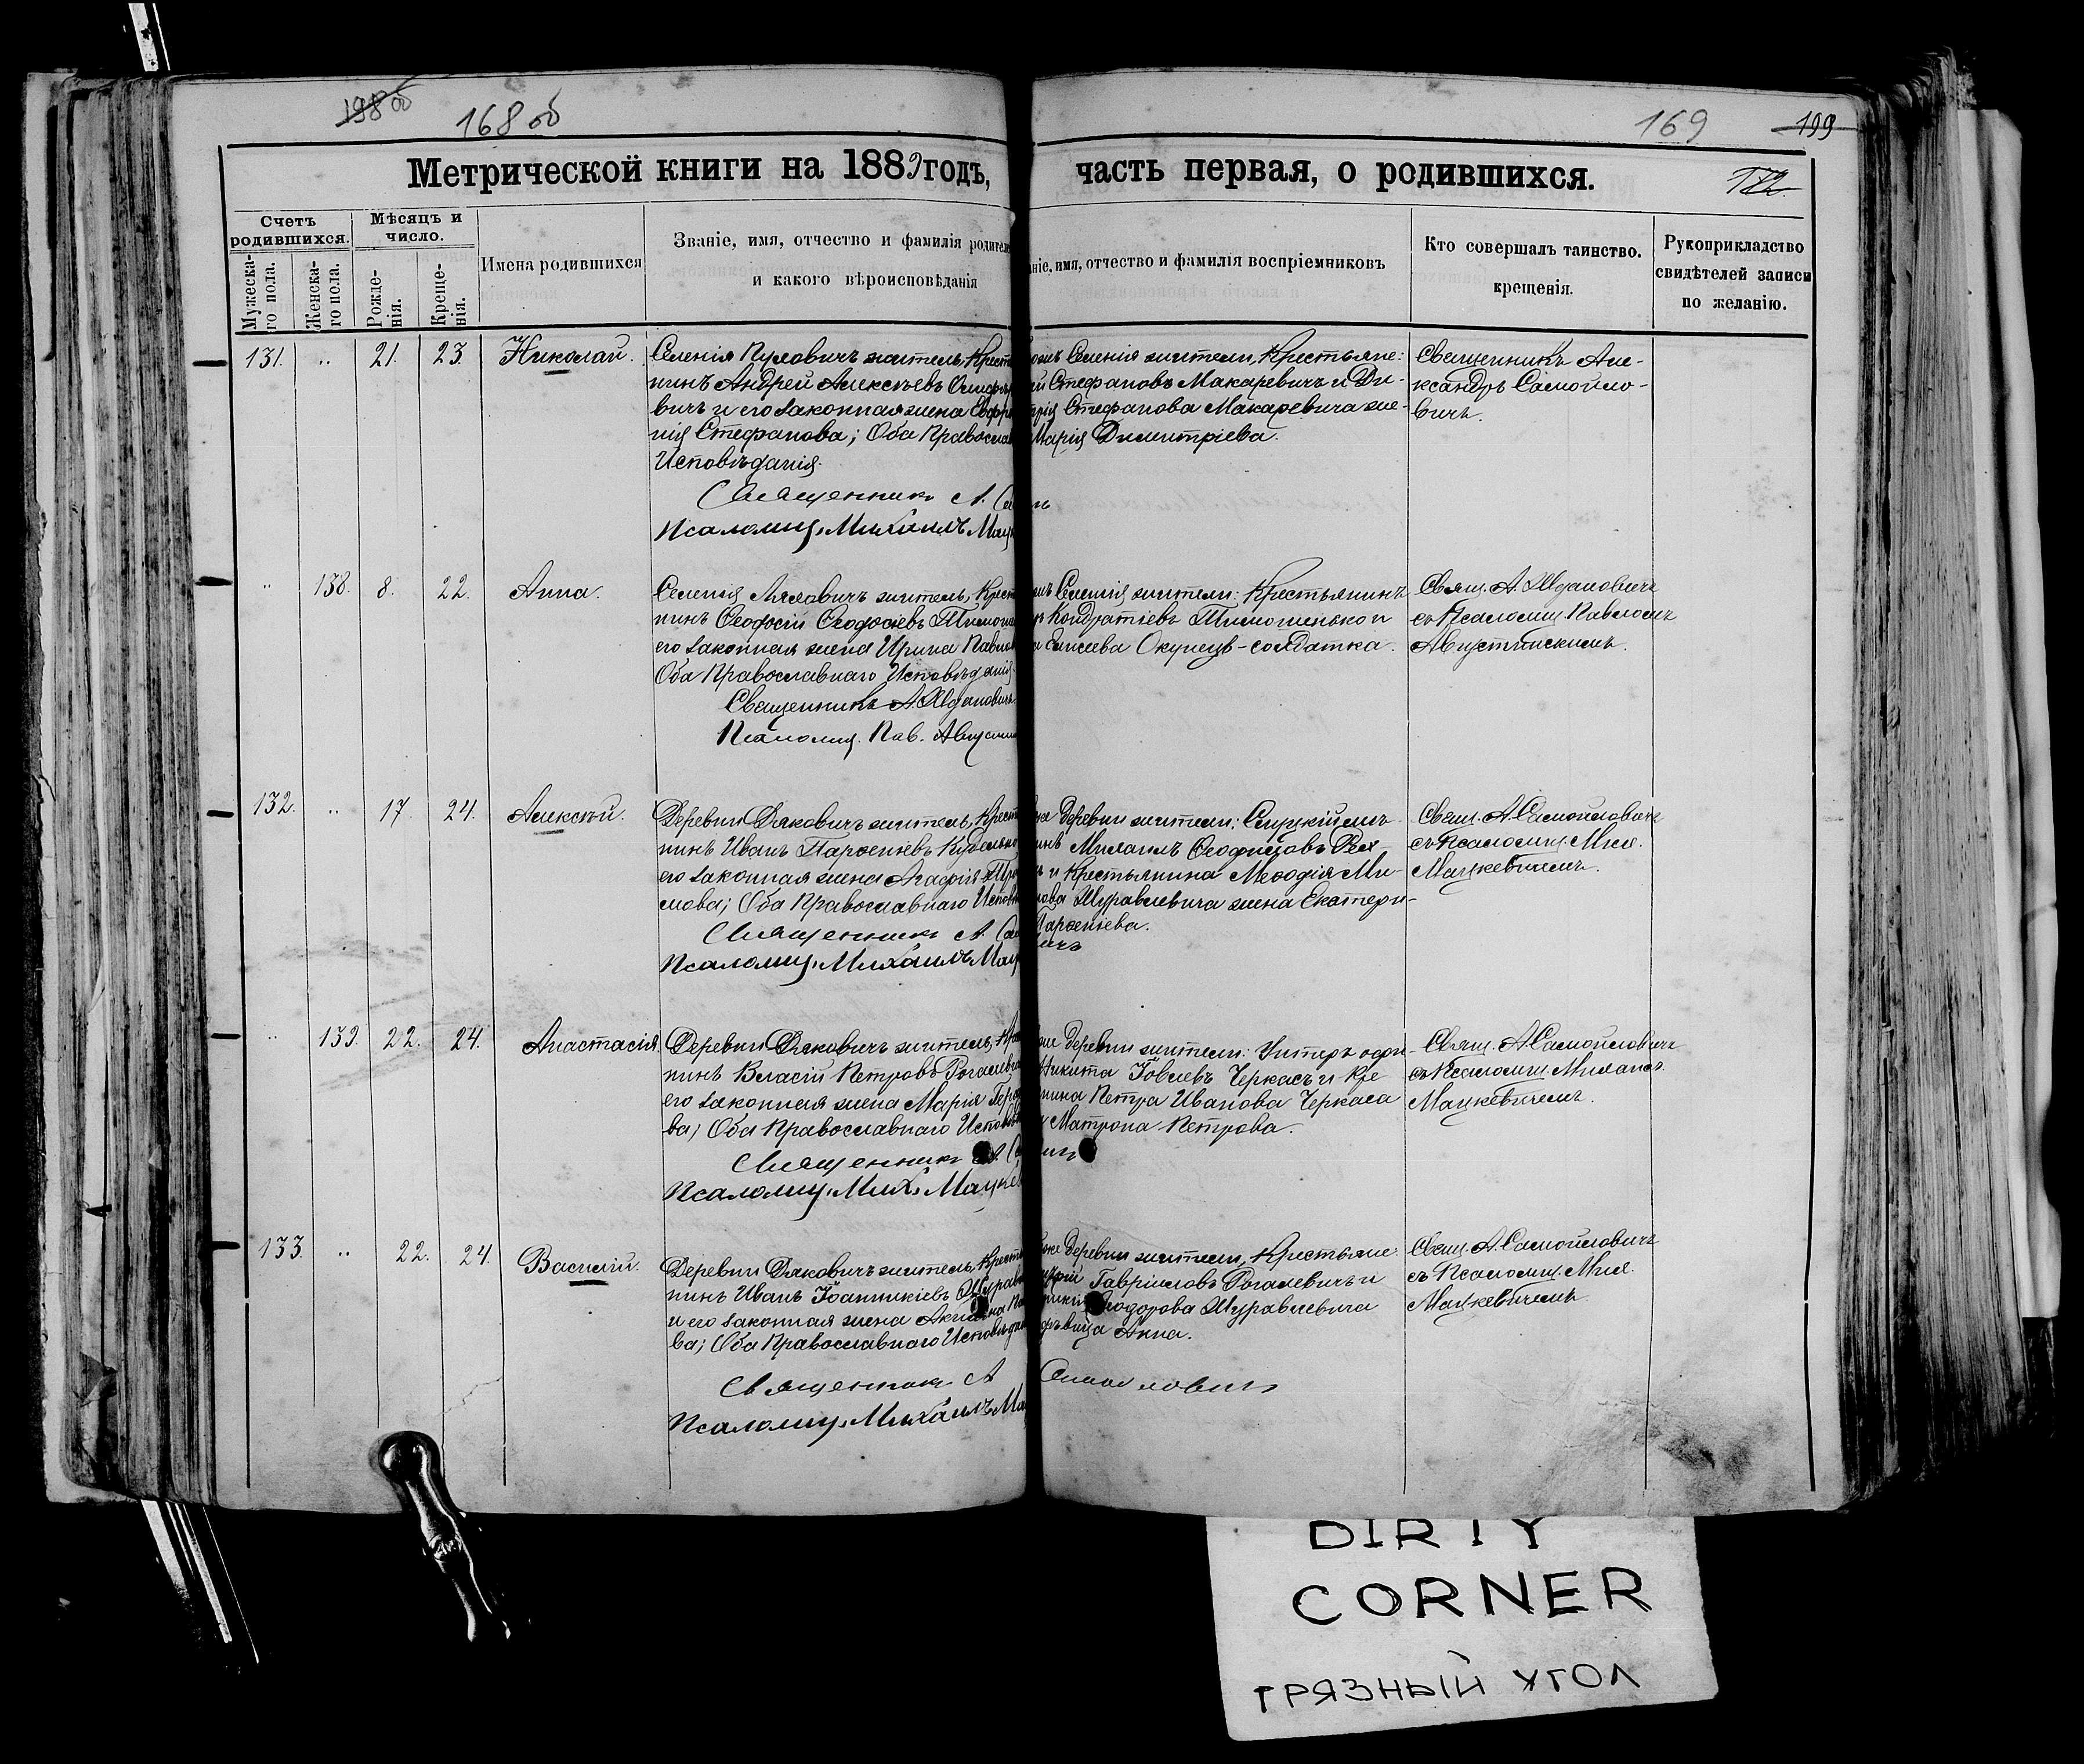 198 об
168 об
169
199
Метрической книги на 1889 годъ,
часть первая, о родившихся.
Счетъ родившихся.
Мѣсяцъ и число.
Мужеска-го пола.
Женска-го пола.
Рожде-нія.
Креще-нія.
Имена родившихся
Званіе, имя, отчество и фамилія родителе
и какого вѣроисповѣданія
ніе, имя, отчество и фамилія воспріемниковъ
Кто совершалъ таинство.
крещенія.
Рукоприкладство
свидѣтелей записи
по желанію.
131. „ 21. 23 Николай.
Селенія Пуховичъ житель, Крест
нинъ Андрей Алексѣевъ
вичъ и его законная жена Евфро
нія Стефанова; Оба Православ
Исповѣданія.
Священникъ А. Са
Псаломщ. Михаилъ Мацк
Селенія жители, Крестьяне:
Стефановъ Макаревичъ и Ди-
Стефанова Макаревича же-
Марія Димитріева.
Священникъ Але-
ксандръ Самойло-
вичъ.
„ 138. 8. 22. Анна.
Селенія Ляховичъ житель, Крест
нинъ Ѳеодосій Ѳеодосіевъ Тимош
его законная жена Ирина Павло
Оба Православнаго Исповѣданія.
Священникъ А. Ждановичъ
Псаломщ. Пав. Августин
Селенія жители: Крестьянинъ
Кондратіевъ Тимошенько и
Елисеева Окунецъ - солдатка.
Свящ. А. Ждановичъ
съ Псаломщ. Павломъ
Августинскимъ.
132. „ 17. 24. Алексѣй.
Деревни Дяковичъ житель, Крест
нинъ Иванъ Парѳеніевъ
его законная жена Агафія
мова; Оба Православнаго Исповѣ
Священникъ А. Са
Псаломщ. Михаилъ Мац
деревни жители: Слуцкій мѣ
Михаилъ
и Крестьянина Меѳодія Ми-
Журавлевича жена Екатери-
Парѳеніева.
Свящ. А. Самойловичъ
съ Псаломщ. Мих.
Мацкевичемъ.
„ 139. 22. 24. Анастасія.
Деревни Дяковичъ житель, Кре
нинъ Власій Петровъ Рогалевич
его законная жена Марія
ва; Оба Православнаго Исповѣ
Священникъ А. Са
Псаломщ. Мих. Мацкев
деревни жители: Унтеръ офи-
Никита Іовлевъ Черкасъ и Кре
нина Петра Иванова Черкаса
Матрона Петрова.
Свящ. А. Самойловичъ
съ Псаломщ. Михаил.
Мацкевичемъ.
133. „ 22. 24. Василій.
Деревни Дяковичъ житель, Кресть
нинъ Иванъ Іоанникіевъ Журав
и его законная жена
ва; Оба Православнаго Исповѣдан
Священникъ А
Псаломщ. Михаилъ Ма
деревни жители, Крестьяне:
Гавріиловъ Рогалевичъ и
Ѳеодорова Журавлевича
дѣвица Анна.
Самойловичъ
Свящ. А. Самойловичъ
съ Псаломщ. Мих.
Мацкевичемъ.
DIRTY
CORNER
ГРЯЗНЫЙ УГОЛ